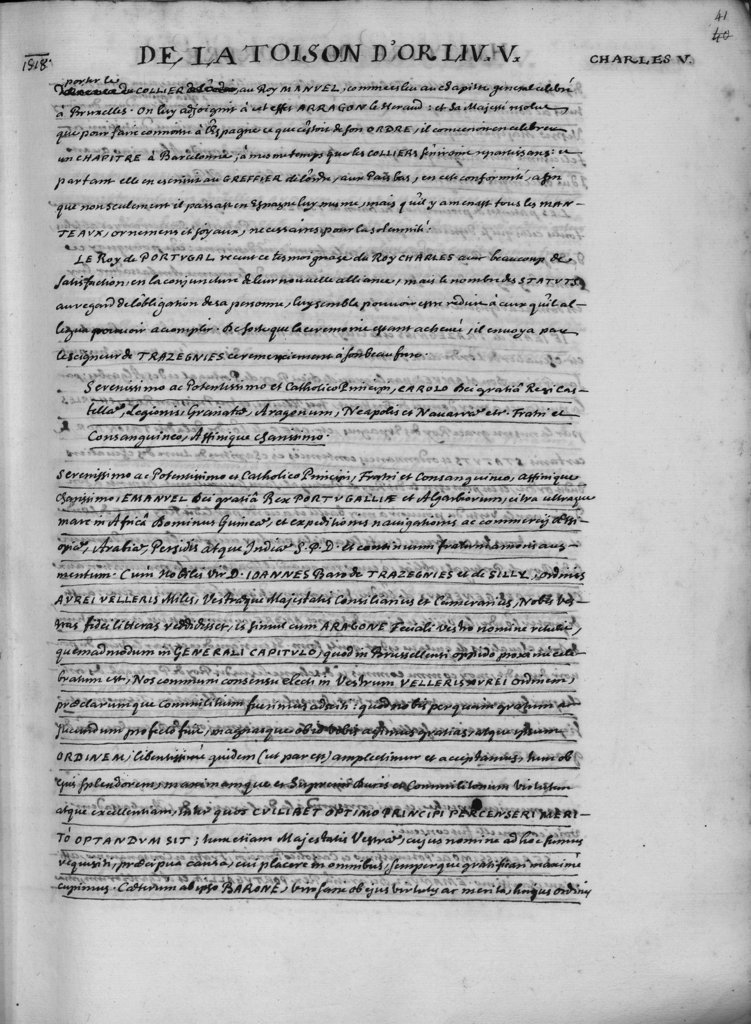 41
40
1518.
DE LA TOISON D'OR LIV. V.
CHARLES V.
porter le
COLLIER au Roy MANUEL, comme esleu au chapitre general celebré
à Bruxelles. On luy adjoignit à cet effet ARRAGON le Heraud: et Sa Majesté resolue
que pour faire connoistre à l'Espagne ce que c'estoit de son ORDRE, il convenoit en celebrer
un CHAPITRE à Barcelonne, à mesme temps que les COLLIERS seroient repartis: et
partant elle en escrivit au GREFFIER de l'ordre, aux Païs bas, en cete conformité, afin
que non seulement il passast en Espagne luy mesme, mais qu'il y amenast tous les MAN-
TEAUX, ornemens et joyaux, necessaires pour la solemnité.
LE Roy de PORTUGAL receut ce tesmoignage du Roy CHARLES avec beaucoup de
satisfaction, en la conjuncture de leur nouvelle alliance, mais le nombre des STATUTS
au regard de l'obligation de sa personne, luy semble pouvoir estre reduit à ceux qu'il al-
legua pouvoir acomplir. De sorte que la ceremonie estant achevée, il envoya par
le seigneur de TRAZEGNIES ce remerciement à son beau frere.
Serenissimo ac Potentissimo et Catholico Principi, CAROLO Dei gratiâ Regi Cas-
tellæ, Legionis, Granatæ, Aragonum, Neapolis et Navarræ etc. Fratri et
Consanguineo, Affinique charissimo.
Serenissimo ac Potentissimo et Catholico Principi, Fratri et Consanguineo, affinique
charissimo, EMANVEL Dei gratiâ Rex PORTVGALLIÆ et Algarbiorum, citra ultraque
mare in Africâ Dominus Guineæ, et expeditionis navigationis ac commercij Æthi-
opiæ, Arabiæ, Persidis atque Indiæ S.P.D. et continuum fraterni amoris aug-
mentum. Cum Nobilis vir D. IOANNES Baro de TRAZEGNIES et de SILLY, ordinis
AVREI VELLERIS Miles, Vestræque Majestatis Consiliarius et Camerarius, Nobis ves-
tras fidei litteras reddidisset, is simul cum ARAGONE Feciali vestro nomine retulit,
quemadmodum in GENERALI CAPITVLO, quod in Bruxellensi oppido proximè cele-
bratum est, Nos communi consensu electi in Vestrum VELLERIS AVREI ordinem
præclarumque Commilitium fuerimus adsciti: quod nobis perquam gratum et
jucundum profectò fuit, magnasque ob id vobis agimus gratias, atque ipsum
ORDINEM, libentissimè quidem (ut par est) amplectimur et acceptamus, tum ob
ejus splendorem, maximamque et Supremi Ducis et Commilitonum virtutem
atque excellentiam, inter quos CVILIBET OPTIMO PRINCIPI PERCENSERI MERI-
TÒ OPTANDVM SIT; tum etiam Majestatis Vestræ, cujus nomine ad hoc fuimus
requisiti, præcipua causa, cui placere in omnibus, semperque gratificari maximè
cupimus. Cæterum ab ipso BARONE, viro sane ob ejus virtutes ac merita, hujus ordinis